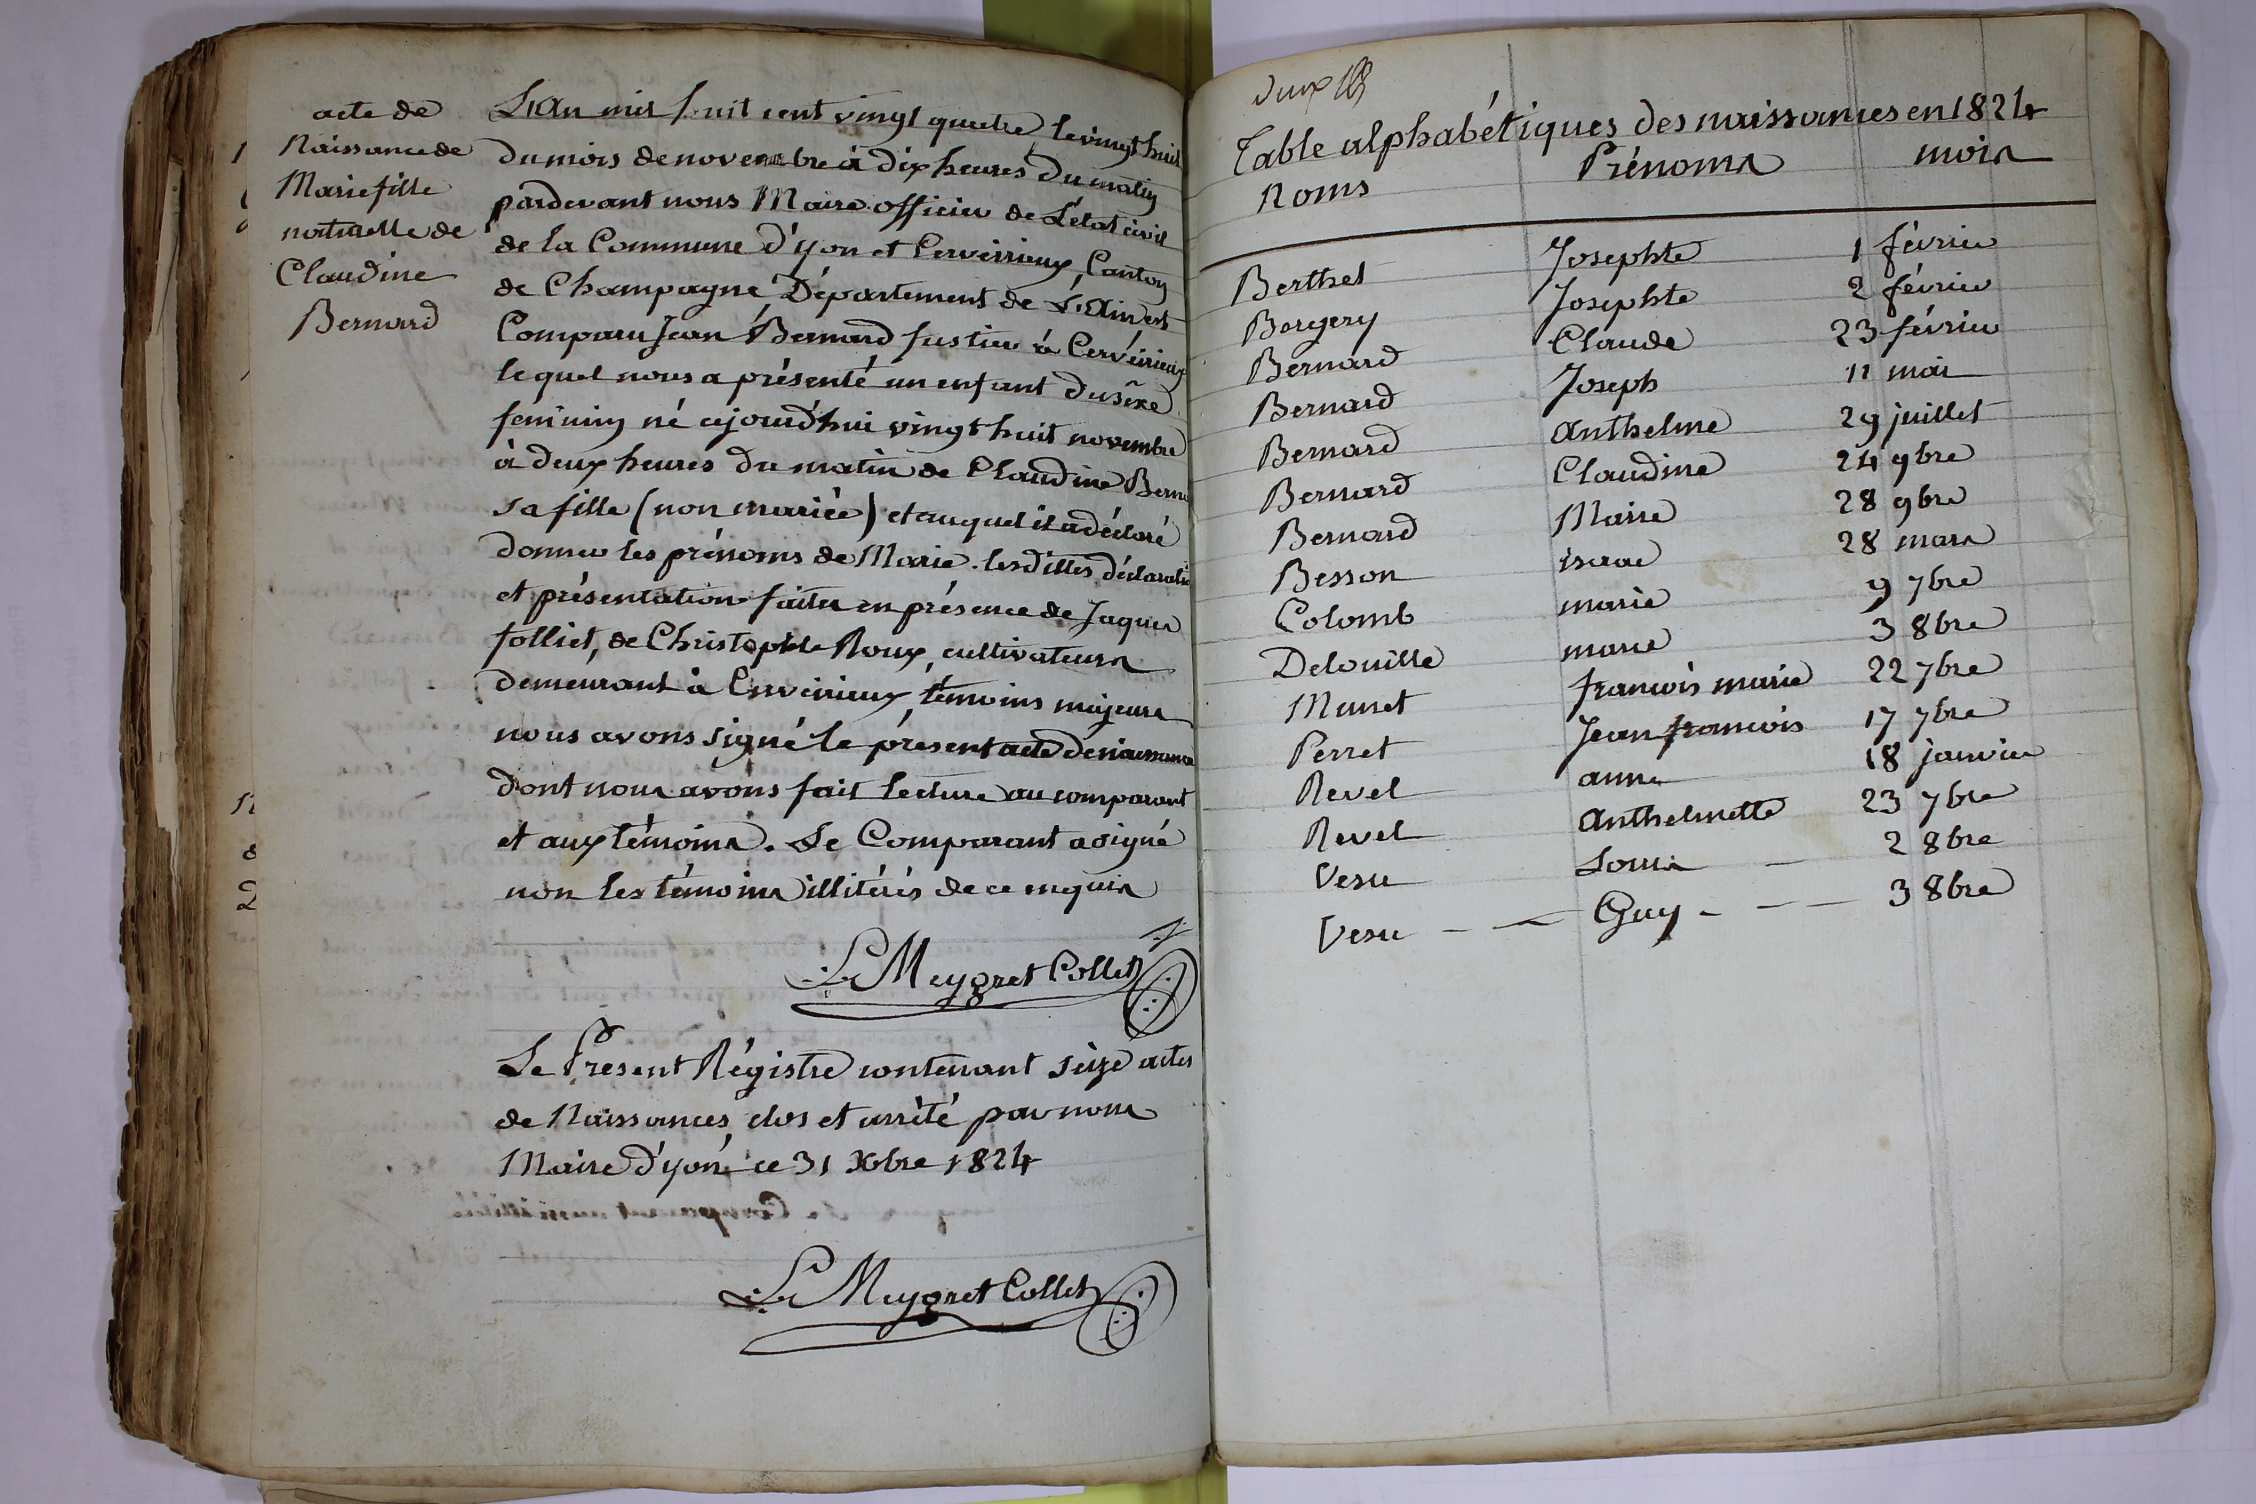 acte de
Naissance de
Marie fille
naturelle de
Claudine
Bernard
L'An mil huit cent vingt quatre le vingt huit
du mois de novembre à dix heures du matin
pardevant nous Maire officier de L'état civil
de la Commune d'yon et Cerveirieux, Canton
de Champagne Département de L'Ain est
Comparu Jean Bernard fustier à Cerveirieux
lequel nous a présenté un enfant du sêxe
feminin né cejourd'hui vingt huit novembre
à deux heures du matin de Claudine Berna
sa fille (non mariée) et auquel il a déclaré
donner les prénoms de Marie. lesdittes déclaratio
et présentation faites en présence de Jaques
folliet, de Christophle Roux, cultivateurs
demeurant à Cerveirieux, témoins majeurs
nous avons signé le présent acte de naissance
dont nous avons fait lecture au comparant
et aux témoins. Le Comparant a signé
non les témoins illitérés de ce enquis
Meygret Collet
Le Présent Régistre contenant seize actes
de Naissances, clos et arrêté par nous
Maire d'yon ce 31 Xbre 1824
Meygret Collet
deux
Table alphabétiques des naissances en 1824
Noms Prénoms mois
Berthet Josephte 1 février
Borgery Josephte 2 février
Bernard Claude 23 février
Bernard Joseph 11 mai
Bernard Anthelme 29 juillet
Bernard Claudine 24 9bre
Bernard Marie 28 9bre
Besson isaac 28 mars
Colomb marie 9 7bre
Delouille marie 3 8bre
Munet francois marie 22 7bre
Perret Jean francois 17 7bre
Revel anne 18 janvier
Revel Anthelmette 23 7bre
Vesu Louis — 2 8bre
Vesu - — Guy - - — 3 8bre